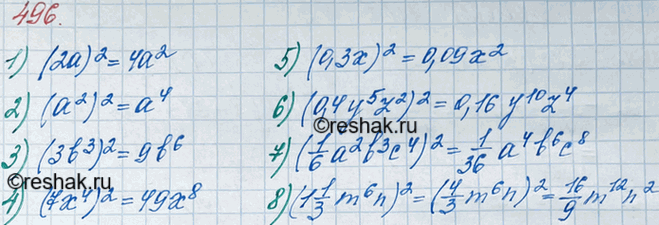 496.
1) (2a)² = 4a²
2) (a²)² = a⁴
3) (3b³)² = 9b⁶
4) (7x⁴)² = 49x⁸
5) (0,3x)² = 0,09x²
6) (0,4y⁵z²)² = 0,16y¹⁰z⁴
7) (1/6 a²b³c⁴)² = 1/36 a⁴b⁶c⁸
8) (1 1/3 m⁶n)² = (4/3 m⁶n)² = 16/9 m¹²n²
©reshak.ru
©reshak.ru
©reshak.ru